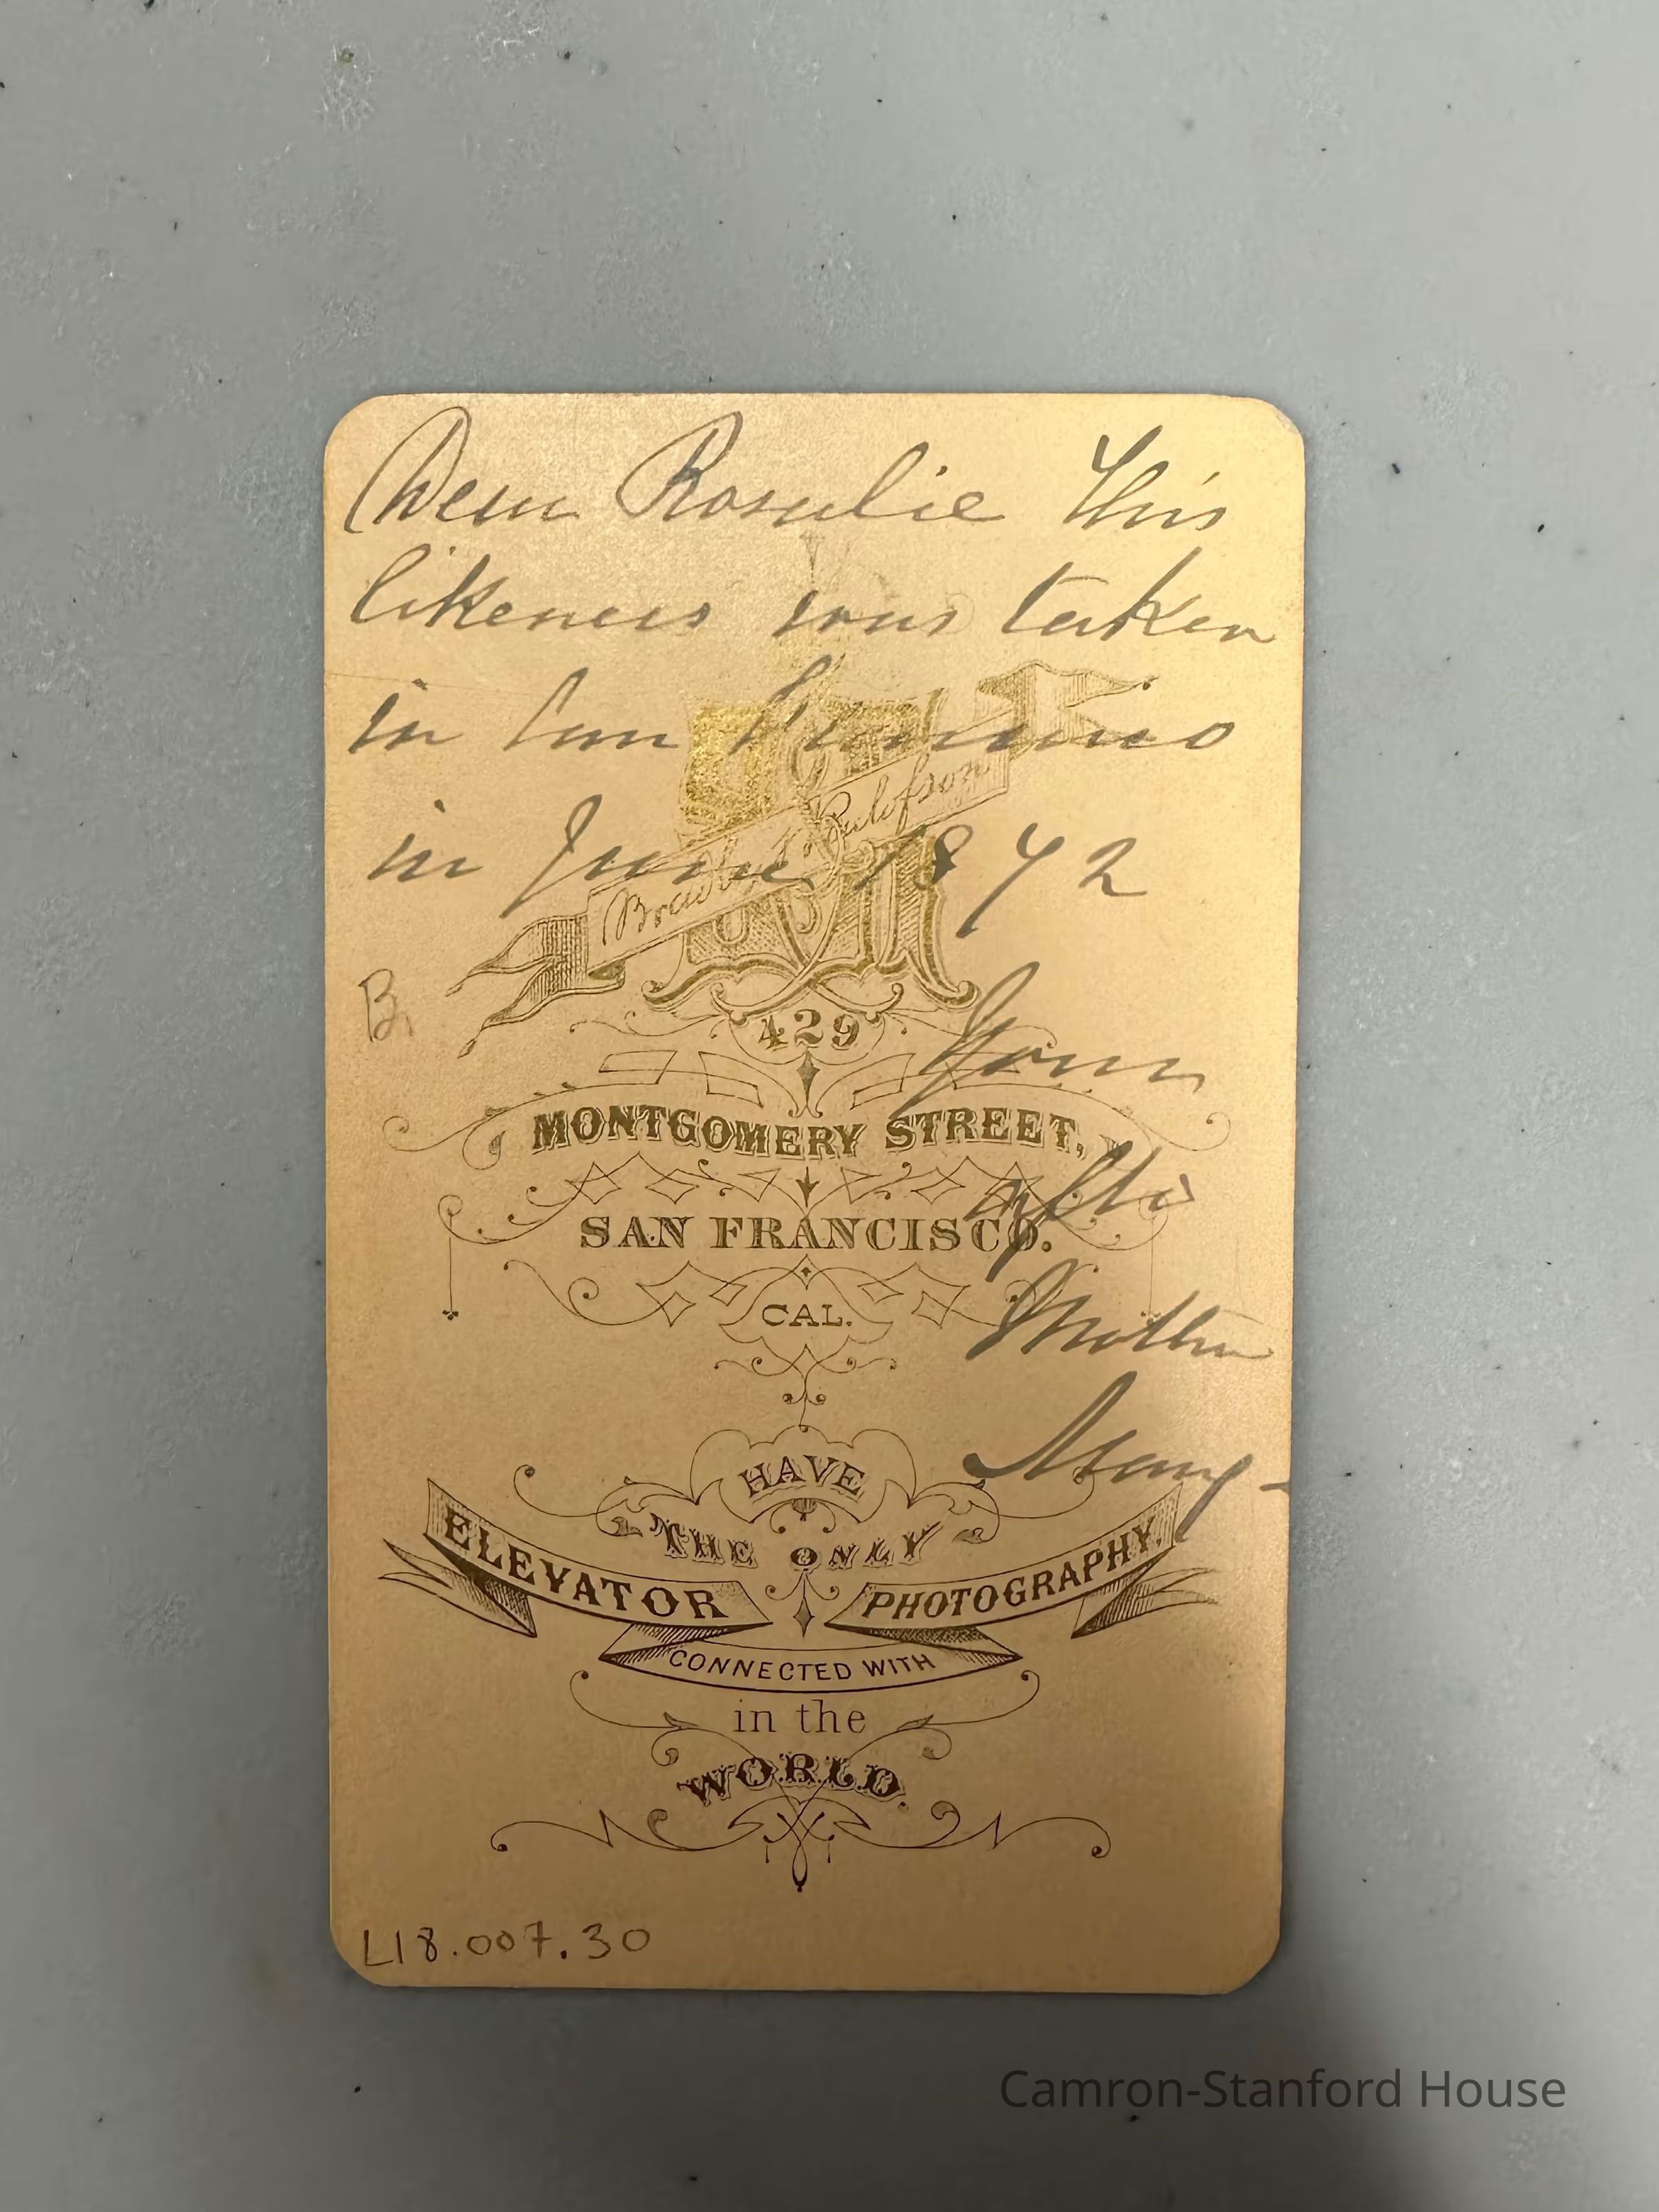 Dear Rosalie This
likeness was taken
in San Francisco
in June 1872
Your
affte
Mother
Mary -
B,
Bradley & Rulofson
429
MONTGOMERY STREET,
SAN FRANCISCO.
CAL.
HAVE
THE ONLY
ELEVATOR PHOTOGRAPHY,
CONNECTED WITH
in the
WORLD.
L18.007.30
Camron-Stanford House